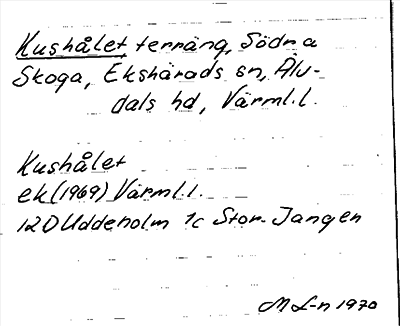 Kushålet terräng, Södra
Skoga, Ekshärads sn, Älv-
dals hd, Värml.l.
Kushålet
ek (1969) Värml.l.
12D Uddeholm 1c Stor-Jangen
M L-n 1970